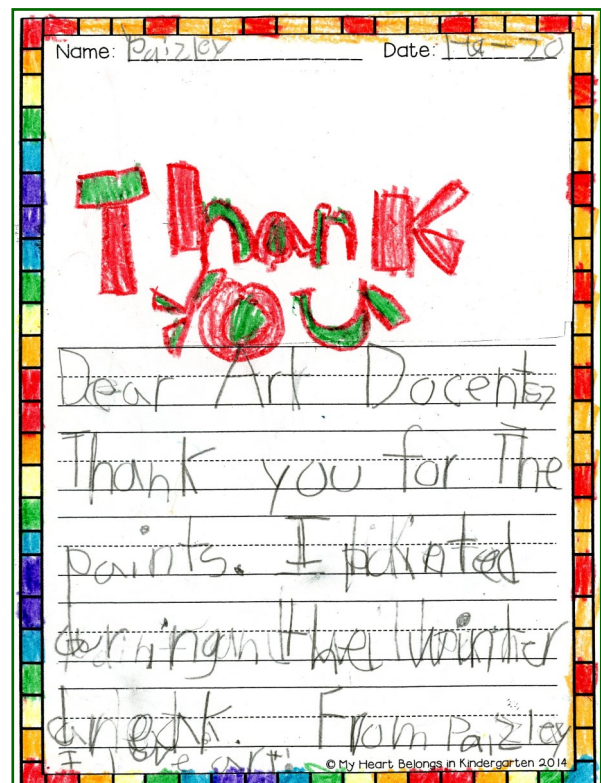 Name: Paizley Date: 1-4-20
Thank
you
Dear Art Docents,
Thank you for The
paints. I painted
the winter
From Paizley
I love art!
© My Heart Belongs in Kindergarten 2014